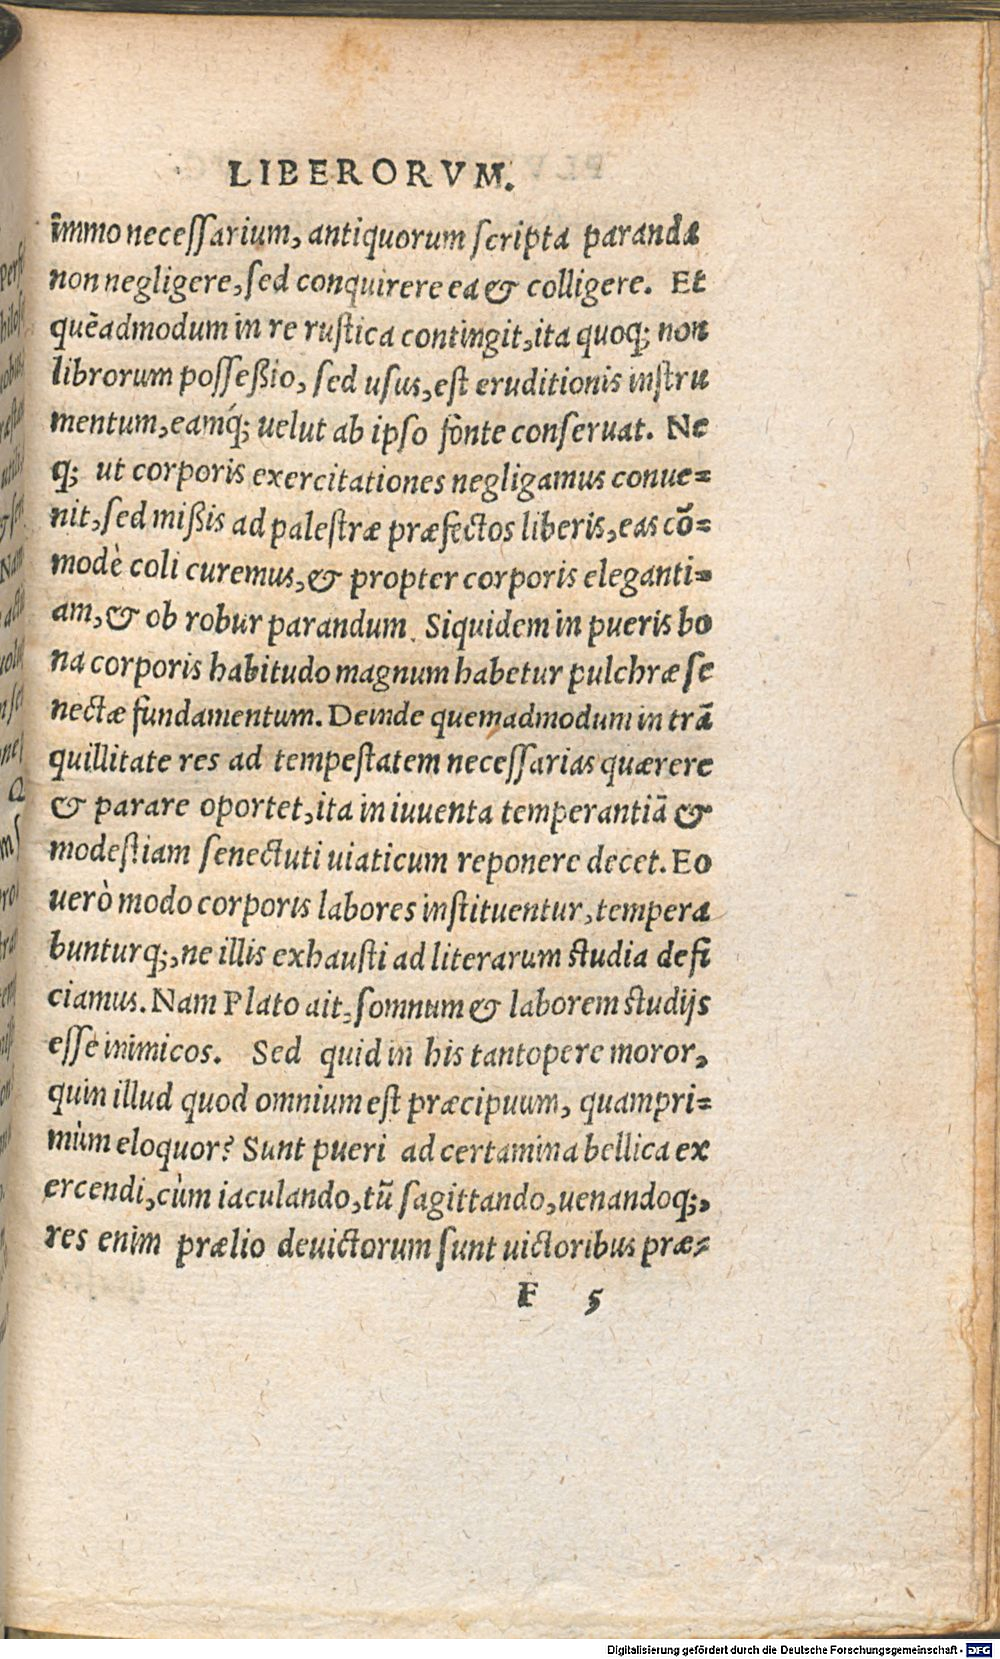 LIBERORVM.
īmmo necessarium, antiquorum scripta paranda
non negligere, sed conquirere ea & colligere. Et
quēadmodum in re rustica contingit, ita quoq; non
librorum posseßio, sed usus, est eruditionis instru
mentum, eamq́; uelut ab ipso fonte conseruat. Ne
q; ut corporis exercitationes negligamus conue=
nit, sed mißis ad palestræ præfectos liberis, eas cō=
modè coli curemus, & propter corporis eleganti=
am, & ob robur parandum. Siquidem in pueris bo
na corporis habitudo magnum habetur pulchræ se
nectæ fundamentum. Deinde quemadmodum in trā
quillitate res ad tempestatem necessarias quærere
& parare oportet, ita in iuuenta temperantiā &
modestiam senectuti uiaticum reponere decet. Eo
uerò modo corporis labores instituentur, tempera
bunturq;, ne illis exhausti ad literarum studia defi
ciamus. Nam Plato ait, somnum & laborem studijs
esse inimicos. Sed quid in his tantopere moror,
quin illud quod omnium est præcipuum, quampri=
mùm eloquor? Sunt pueri ad certamina bellica ex
ercendi, cùm iaculando, tū sagittando, uenandoq;,
res enim prælio deuictorum sunt uictoribus præ=
F 5
Digitalisierung gefördert durch die Deutsche Forschungsgemeinschaft - DFG